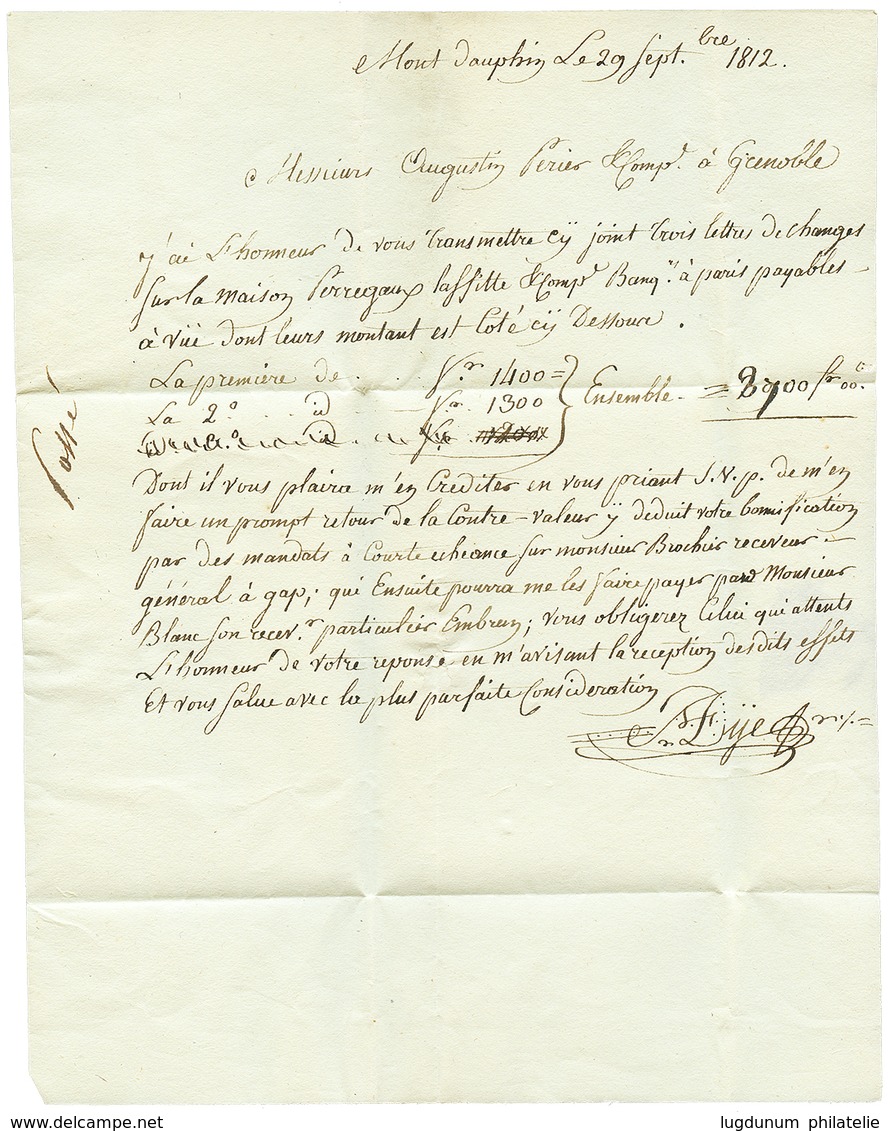 Mont Dauphin Le 29 Sept.bre 1812.
Messieurs Augustin Perier & Comp.e à Grenoble
J'ai L'honneur de vous transmettre cÿ joint trois lettres de changes
Sur la maison Perregaux laffitte & Comp.e Banq.rs à paris payables
à Vüe dont leurs montant est Coté cÿ Dessour.
La première de ... f.r 1400 =
La 2.e ... id f.r 1300
3.e id
Ensemble = 2700 fr 00.c
Passé
Dont il vous plaira m'en Crediter en vous priant S.V.p. de m'en
faire un prompt retour de la Contre-valeur ÿ deduit votre bonnification
par des mandats à Courte echeance sur monsieur Brochier receveur
général à gap; qui Ensuite pourra me les faire payer par Monsieur
Blanc son recev.r particulier Embrun; vous obligerez Celui qui attents
L'honneur de votre reponse en m'avisant la reception desdits effets
Et vous Salue avec la plus parfaite Consideration
delcampe.net
lugdunum philatelie